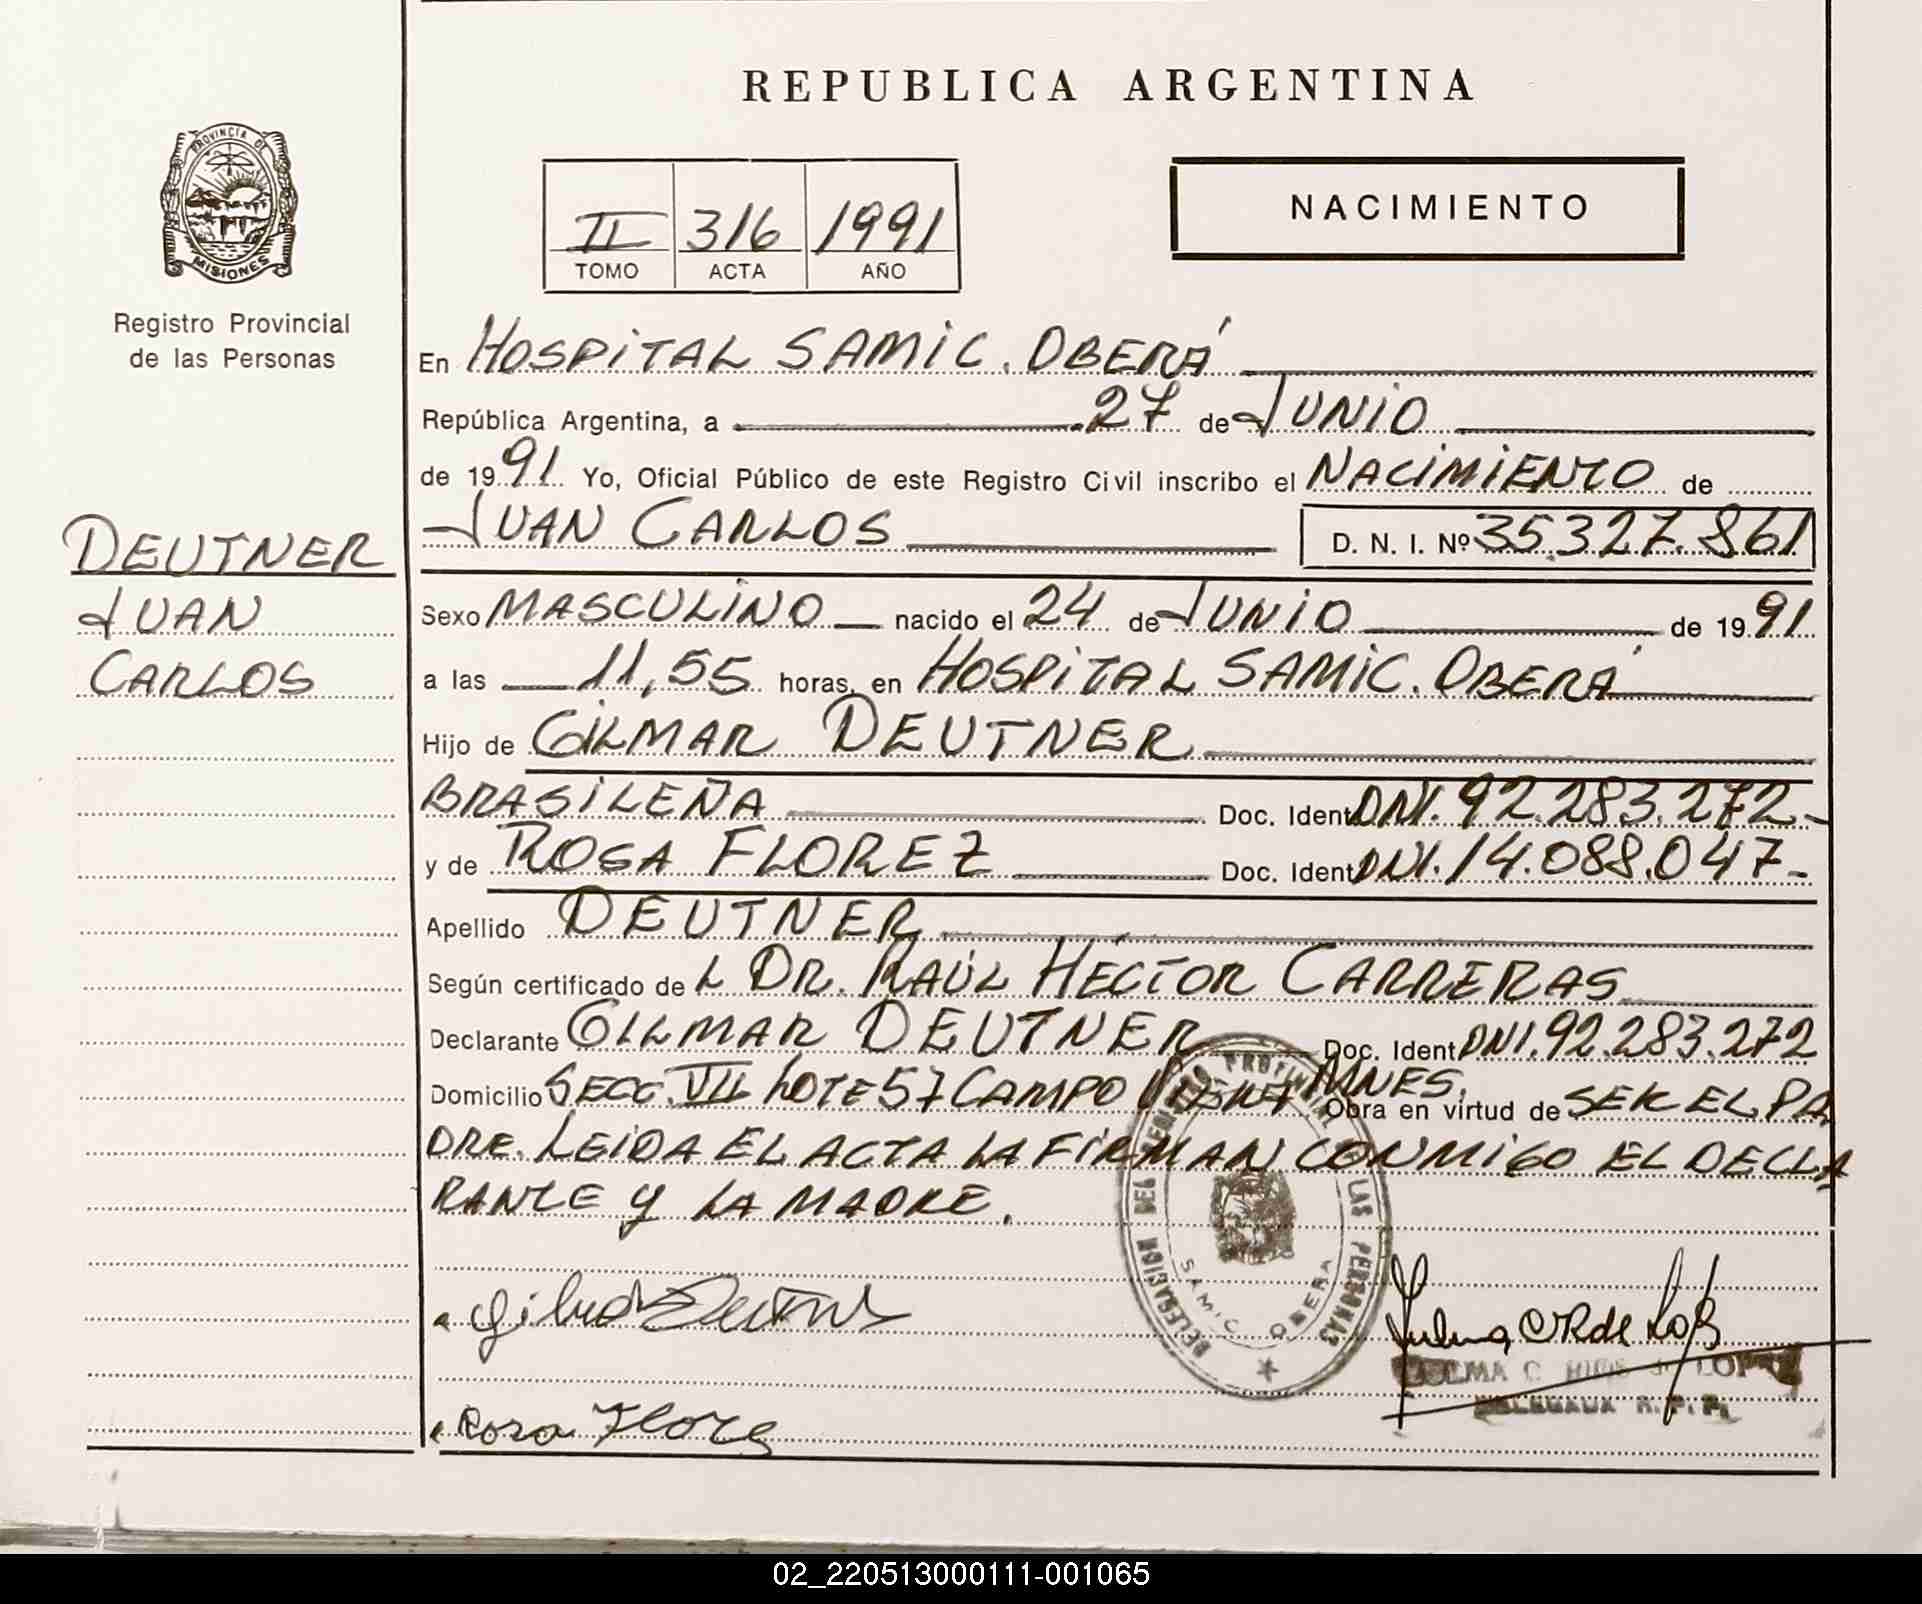 REPUBLICA ARGENTINA
PROVINCIA DE
MISIONES
Registro Provincial
de las Personas
II 316 1991
TOMO ACTA AÑO
NACIMIENTO
En HOSPITAL SAMIC. OBERÁ
República Argentina, a 27 de JUNIO
de 1991 Yo, Oficial Público de este Registro Civil inscribo el NACIMIENTO de
JUAN CARLOS D. N. I. Nº 35.327.861
DEUTNER
JUAN
CARLOS
Sexo MASCULINO nacido el 24 de JUNIO de 1991
a las 11,55 horas, en HOSPITAL SAMIC. OBERÁ
Hijo de GILMAR DEUTNER
BRASILEÑA Doc. Ident DNI. 92.283.272-
y de ROSA FLOREZ Doc. Ident DNI. 14.088.047-
Apellido DEUTNER
Según certificado de L DR. RAÚL HÉCTOR CARRERAS
Declarante GILMAR DEUTNER Doc. Ident DNI. 92.283.272
Domicilio SECC. VII LOTE 57 CAMPO VIERA MNES. Obra en virtud de SER EL PA
DRE. LEIDA EL ACTA LA FIRMAN CONMIGO EL DECLA
RANTE Y LA MADRE.
DELEGACION DEL REGISTRO PROVINCIAL DE LAS PERSONAS
SAMIC OBERA
Rosa Flores
02_220513000111-001065